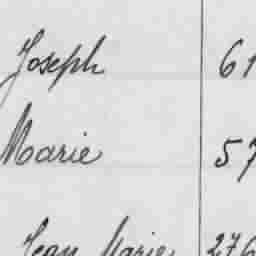 Joseph 61
Marie 57
Jean Marie 276